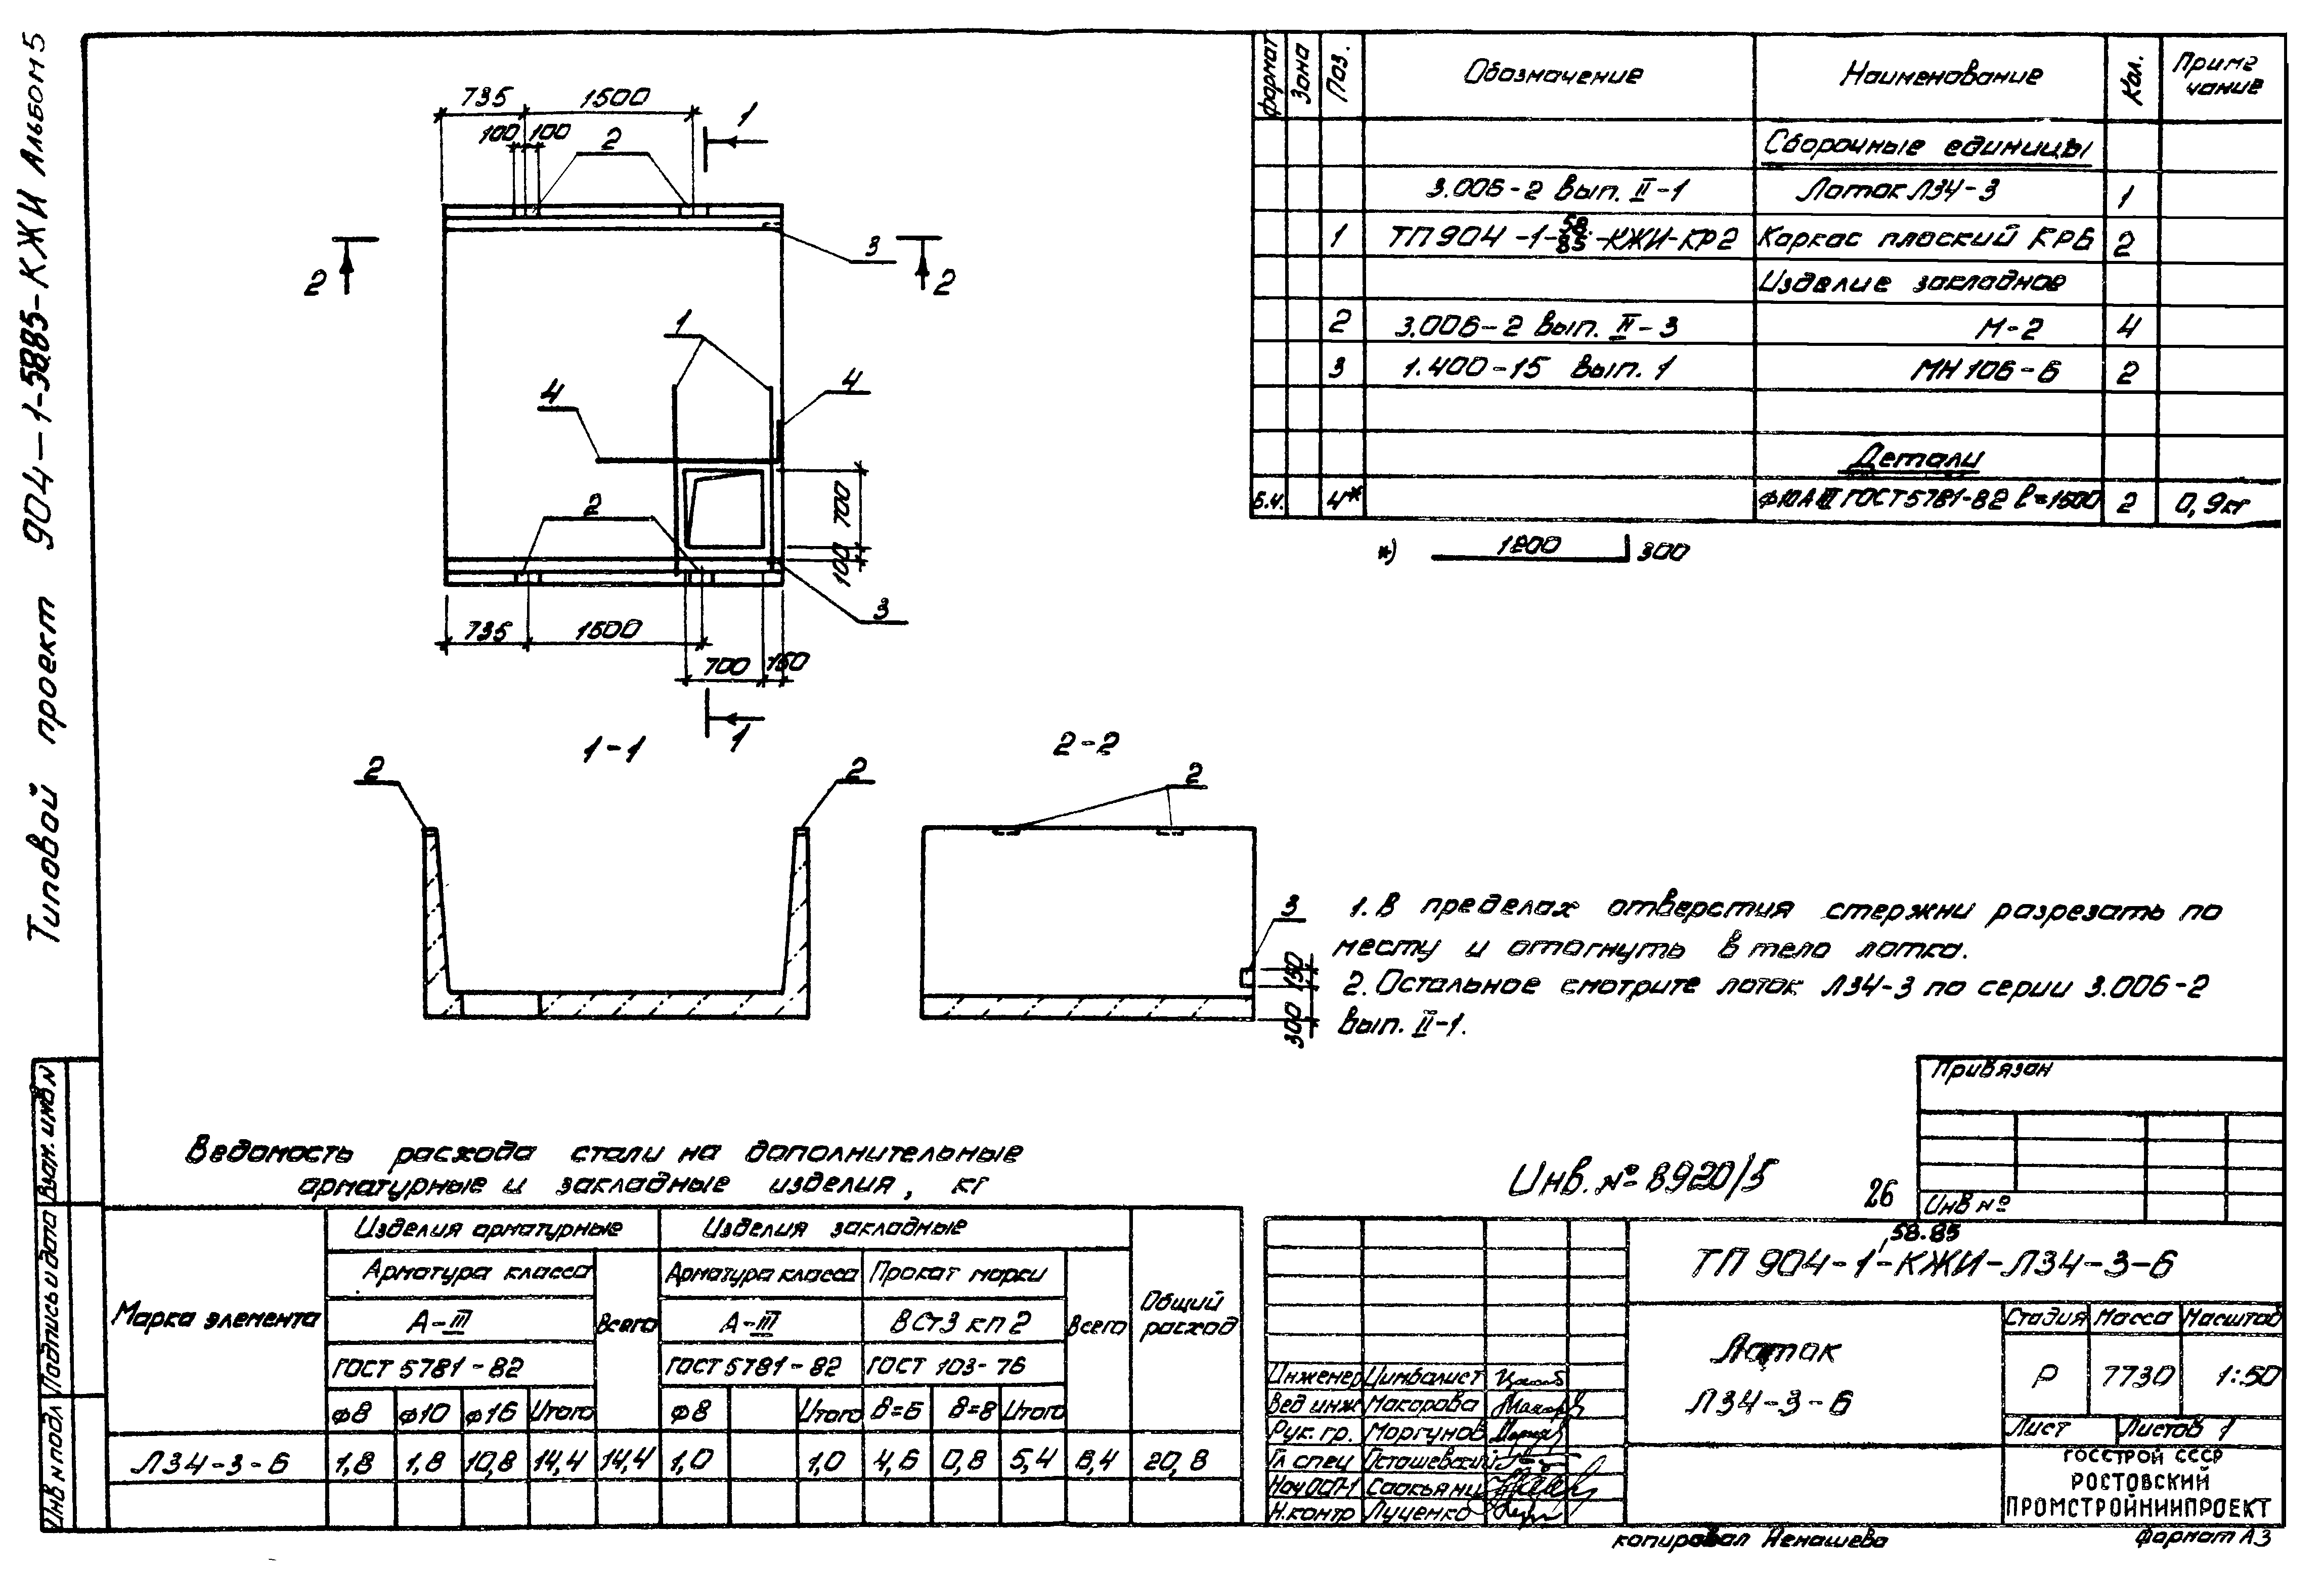 Типовой проект 904-1-58.85-КЖИ Альбом 5
735 1500
100 100 2
1
3
2 2
1
4 4
2
700
100
3
735 1500
700 150
1
1-1
2 2
2-2
2
3
150
300
формат Зона Поз. Обозначение Наименование Кол. Приме
чание
Сборочные единицы
3.006-2 Вып. II-1 Лоток Л34-3 1
1 ТП904-1-58.85-КЖИ-КР2 Каркас плоский КР6 2
Изделие закладное
2 3.006-2 Вып. II-3 М-2 4
3 1.400-15 Вып. 1 МН106-6 2
Детали
Б.Ч. 4* Ф10АIII ГОСТ5781-82 ℓ=1500 2 0,9кг
*) 1200 300
1. В пределах отверстия стержни разрезать по
месту и отогнуть в тело лотка.
2. Остальное смотрите лоток Л34-3 по серии 3.006-2
Вып. II-1.
Привязан
Инв №
Инв. № 8920/5 26
Ведомость расхода стали на дополнительные
арматурные и закладные изделия, кг
Марка элемента Изделия арматурные Изделия закладные Общий
расход
Арматура класса Всего Арматура класса Прокат марки Всего
А-III А-III ВСт3 кп 2
ГОСТ 5781-82 ГОСТ 5781-82 ГОСТ 103-76
Ф8 Ф10 Ф16 Итого Ф8 Итого δ=6 δ=8 Итого
Л34-3-6 1,8 1,8 10,8 14,4 14,4 1,0 1,0 4,6 0,8 5,4 6,4 20,8
58.85
ТП 904-1-КЖИ-Л34-3-6
Лоток
Л34-3-6
Стадия Масса Масштаб
Р 7730 1:50
Лист Листов 1
ГОССТРОЙ СССР
РОСТОВСКИЙ
ПРОМСТРОЙНИИПРОЕКТ
Инженер Цимбалист
Вед инж Макарова
Рук. гр. Моргунов
Гл спец Осташевский
Нач ОСП-1 Саакьянц
Н.контр Луценко
копировал Ненашева формат А3
Взам. инв N
Подпись и дата
Инв N подл